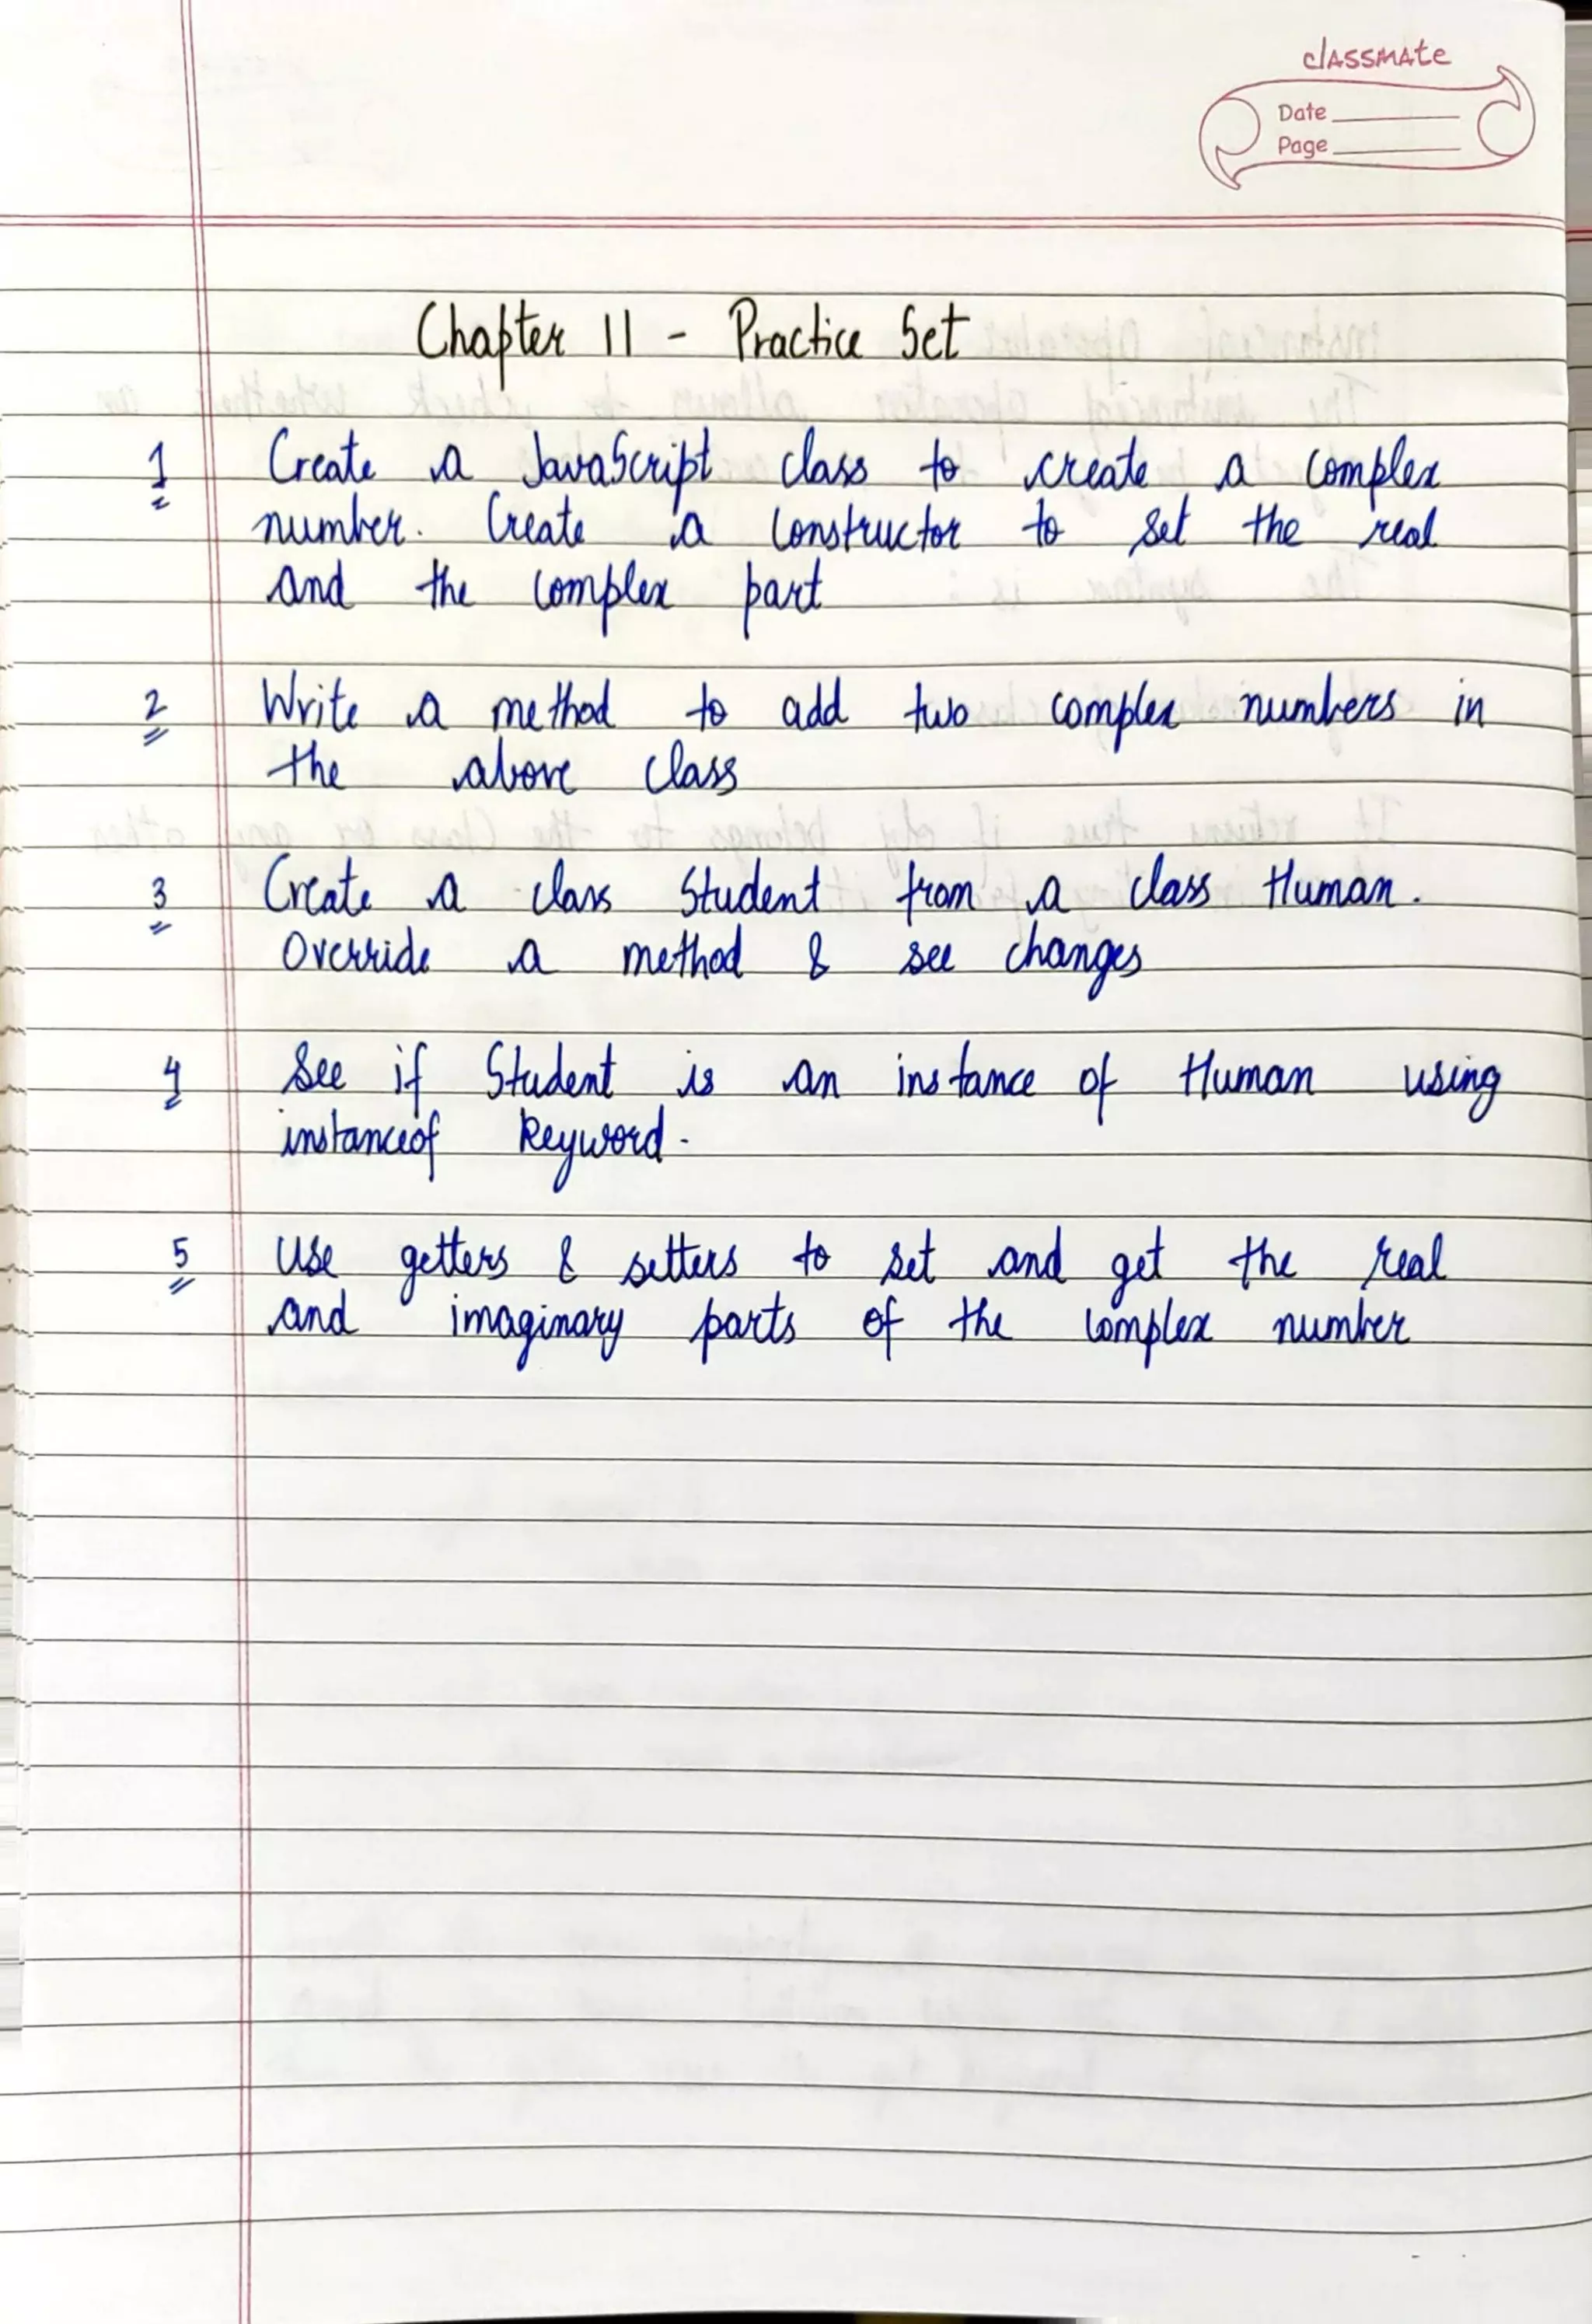 classmate
Date
Page
Chapter 11 - Practice Set
1 Create a JavaScript class to create a complex
number. Create a constructor to set the real
and the complex part
2 Write a method to add two complex numbers in
the above class
3 Create a class Student from a class Human.
Override a method & see changes
4 See if Student is an instance of Human using
instanceof keyword.
5 Use getters & setters to set and get the real
and imaginary parts of the complex number